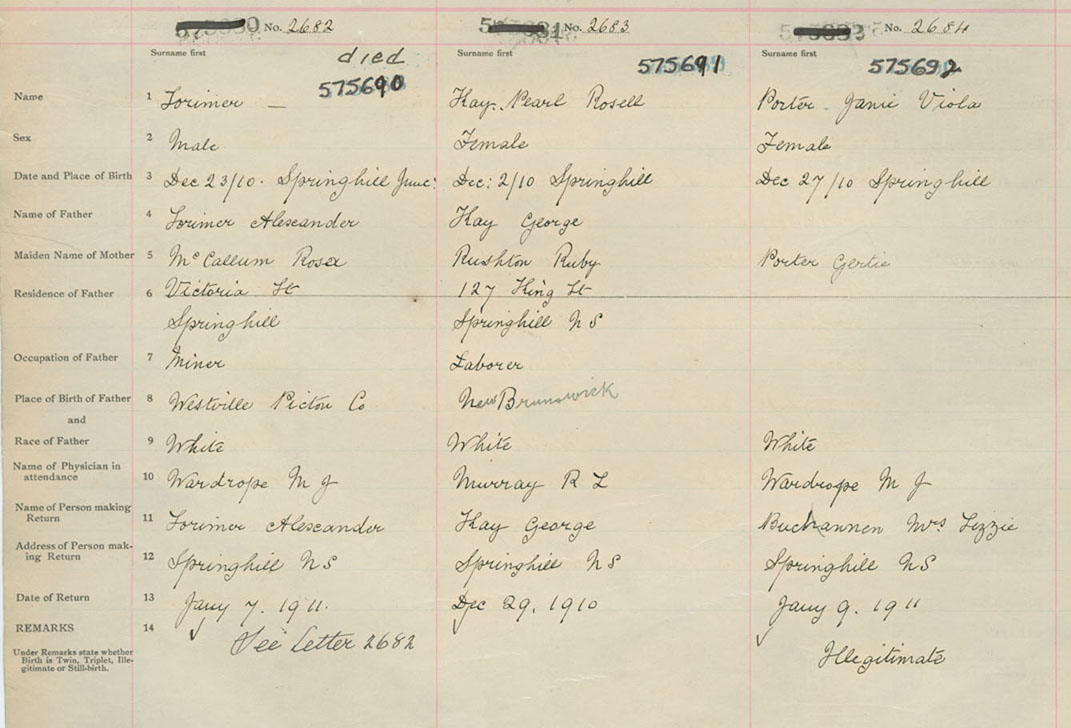 No. 2682 No. 2683 No. 2684
Surname first Surname first Surname first
died
575690 575691 575692
Name 1 Lorimer — Kay, Pearl Rosell Porter. Janie Viola
Sex 2 Male Female Female
Date and Place of Birth 3 Dec 23/10. Springhill Junc: Dec: 2/10 Springhill Dec 27/10 Springhill
Name of Father 4 Lorimer Alexander Kay George
Maiden Name of Mother 5 McCallum Rosa Rushton Ruby Porter Gertie
Residence of Father 6 Victoria St 127 King St
Springhill Springhill N S
Occupation of Father 7 Miner Laborer
Place of Birth of Father 8 Westville Pictou Co New Brunswick
and
Race of Father 9 White White White
Name of Physician in
attendance 10 Wardrope M J Murray R L Wardrope M J
Name of Person making
Return 11 Lorimer Alexander Kay George Buchannen Mrs Lizzie
Address of Person mak-
ing Return 12 Springhill N S Springhill N S Springhill N S
Date of Return 13 Jany 7. 1911. Dec 29. 1910 Jany 9. 1911
REMARKS 14 See Letter 2682
Under Remarks state whether
Birth is Twin, Triplet, Ille- Illegitimate
gitimate or Still-birth.